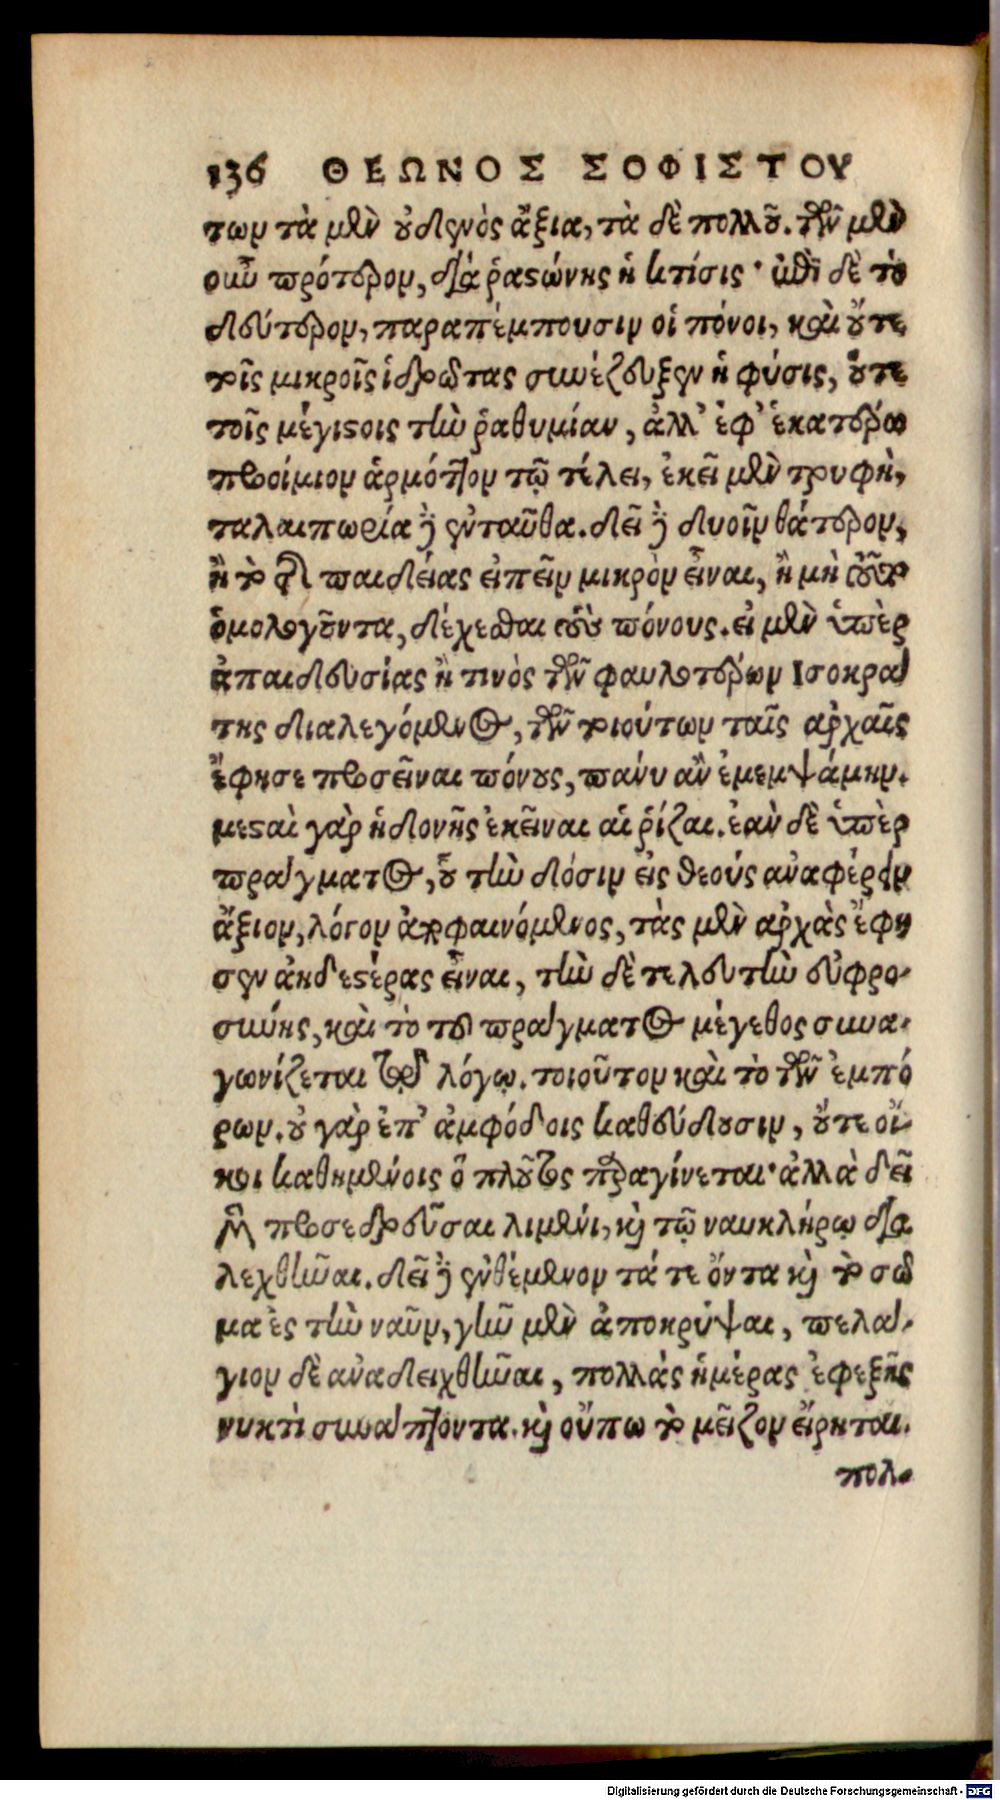 136 ΘΕΩΝΟΣ ΣΟΦΙΣΤΟΥ
των τὰ μὲν οὐδενὸς ἄξια, τὰ δὲ πολλοῦ. τῶν μὲν
οὖν πρότερον, διὰ ῥαστώνης ἡ κτίσις· ἐπὶ δὲ τὸ
δεύτερον, παραπέμπουσιν οἱ πόνοι, καὶ οὔτε
τοῖς μικροῖς ἱδρῶτας συνέζευξεν ἡ φύσις, οὔτε
τοῖς μεγίστοις τὴν ῥαθυμίαν, ἀλλ' ἐφ' ἑκατέρῳ
προοίμιον ἁρμόττον τῷ τέλει, ἐκεῖ μὲν τρυφὴ,
ταλαιπωρία δὲ ἐνταῦθα. δεῖ δὲ δυοῖν θάτερον,
ἢ τὸ τῆς παιδείας εἰπεῖν μικρὸν εἶναι, ἢ μὴ τοῦτο
ὁμολογοῦντα, δέχεσθαι τοὺς πόνους. εἰ μὲν ὑπὲρ
ἀπαιδευσίας ἤ τινὸς τῶν φαυλοτέρων Ισοκρα
της διαλεγόμενος, τῶν τοιούτων ταῖς ἀρχαῖς
ἔφησε προσεῖναι πόνους, πάνυ ἂν ἐμεμψάμην.
μεσταὶ γὰρ ἡδονῆς ἐκεῖναι αἱ ῥίζαι. ἐὰν δὲ ὑπὲρ
πράγματος, οὗ τὴν δόσιν εἰς θεοὺς ἀναφέρειν
ἄξιον, λόγον ἀποφαινόμενος, τὰς μὲν ἀρχὰς ἔφη
σεν ἀηδεστέρας εἶναι, τὴν δὲ τελευτὴν εὐφρο-
σύνης, καὶ τὸ τοῦ πράγματος μέγεθος συνα-
γωνίζεται τῷ λόγῳ. τοιοῦτον καὶ τὸ τῶν ἐμπό
ρων. οὐ γὰρ ἐπ' ἀμφόδοις καθεύδουσιν, οὔτε οἴ-
κοι καθημένοις ὁ πλοῦτος παραγίνεται· ἀλλὰ δεῖ
μὲν προσεδρεῦσαι λιμένι, καὶ τῷ ναυκλήρῳ δια
λεχθῆναι. δεῖ δὲ ἐνθέμενον τά τε ὄντα καὶ τὸ σῶ
μα ἐς τὴν ναῦν, γῆν μὲν ἀποκρύψαι, πελά-
γιον δὲ ἀναδειχθῆναι, πολλὰς ἡμέρας ἐφεξῆς
νυκτὶ συνάπτοντα. καὶ οὔπω τὸ μεῖζον εἴρηται.
πολ-
Digitalisierung gefördert durch die Deutsche Forschungsgemeinschaft - DFG